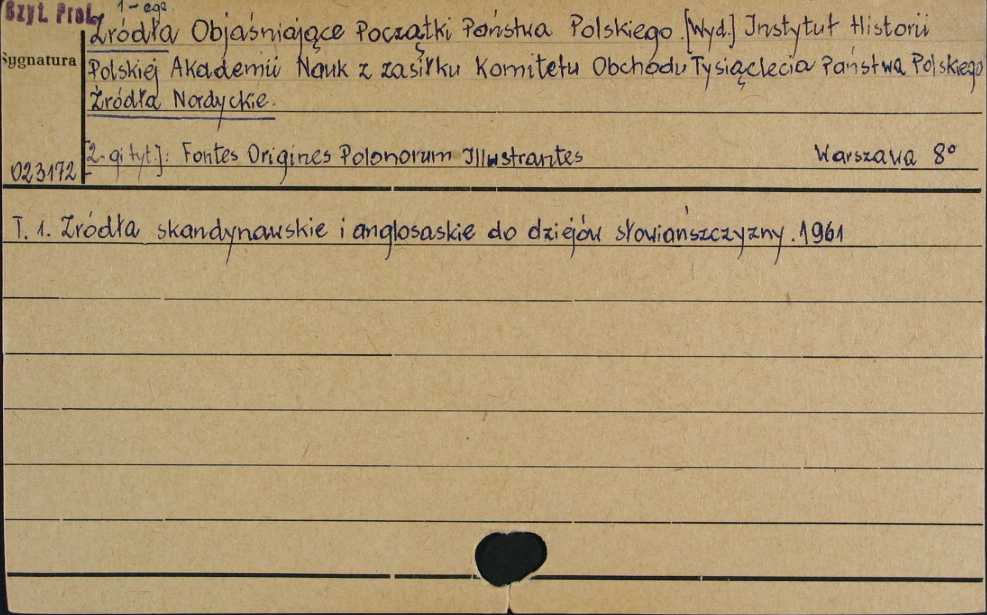 Czyt. Prof.
1-ego
Źródła Objaśniające Początki Państwa Polskiego. [Wyd.] Instytut Historii
Sygnatura
Polskiej Akademii Nauk z zasiłku Komitetu Obchodu Tysiąclecia Państwa Polskiego
Źródła Nordyckie.
[2-gi tyt.]: Fontes Origines Polonorum Illustrantes Warszawa 8°
023172
T. 1. Źródła skandynawskie i anglosaskie do dziejów słowiańszczyzny. 1961